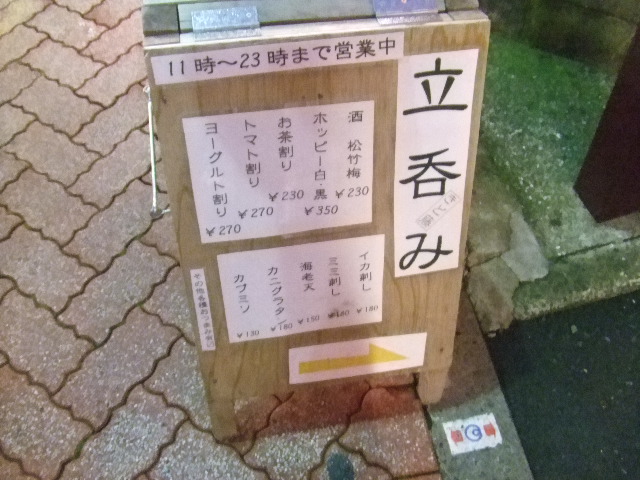 11時～23時まで営業中
立呑み
酒 松竹梅 ￥230
ホッピー白・黒 ￥350
お茶割り ￥230
トマト割り ￥270
ヨーグルト割り ￥270
イカ刺し ￥180
ミミ刺し ￥180
海老天 ￥150
カニグラタン ￥180
カブミソ ￥130
その他各種おつまみ有り